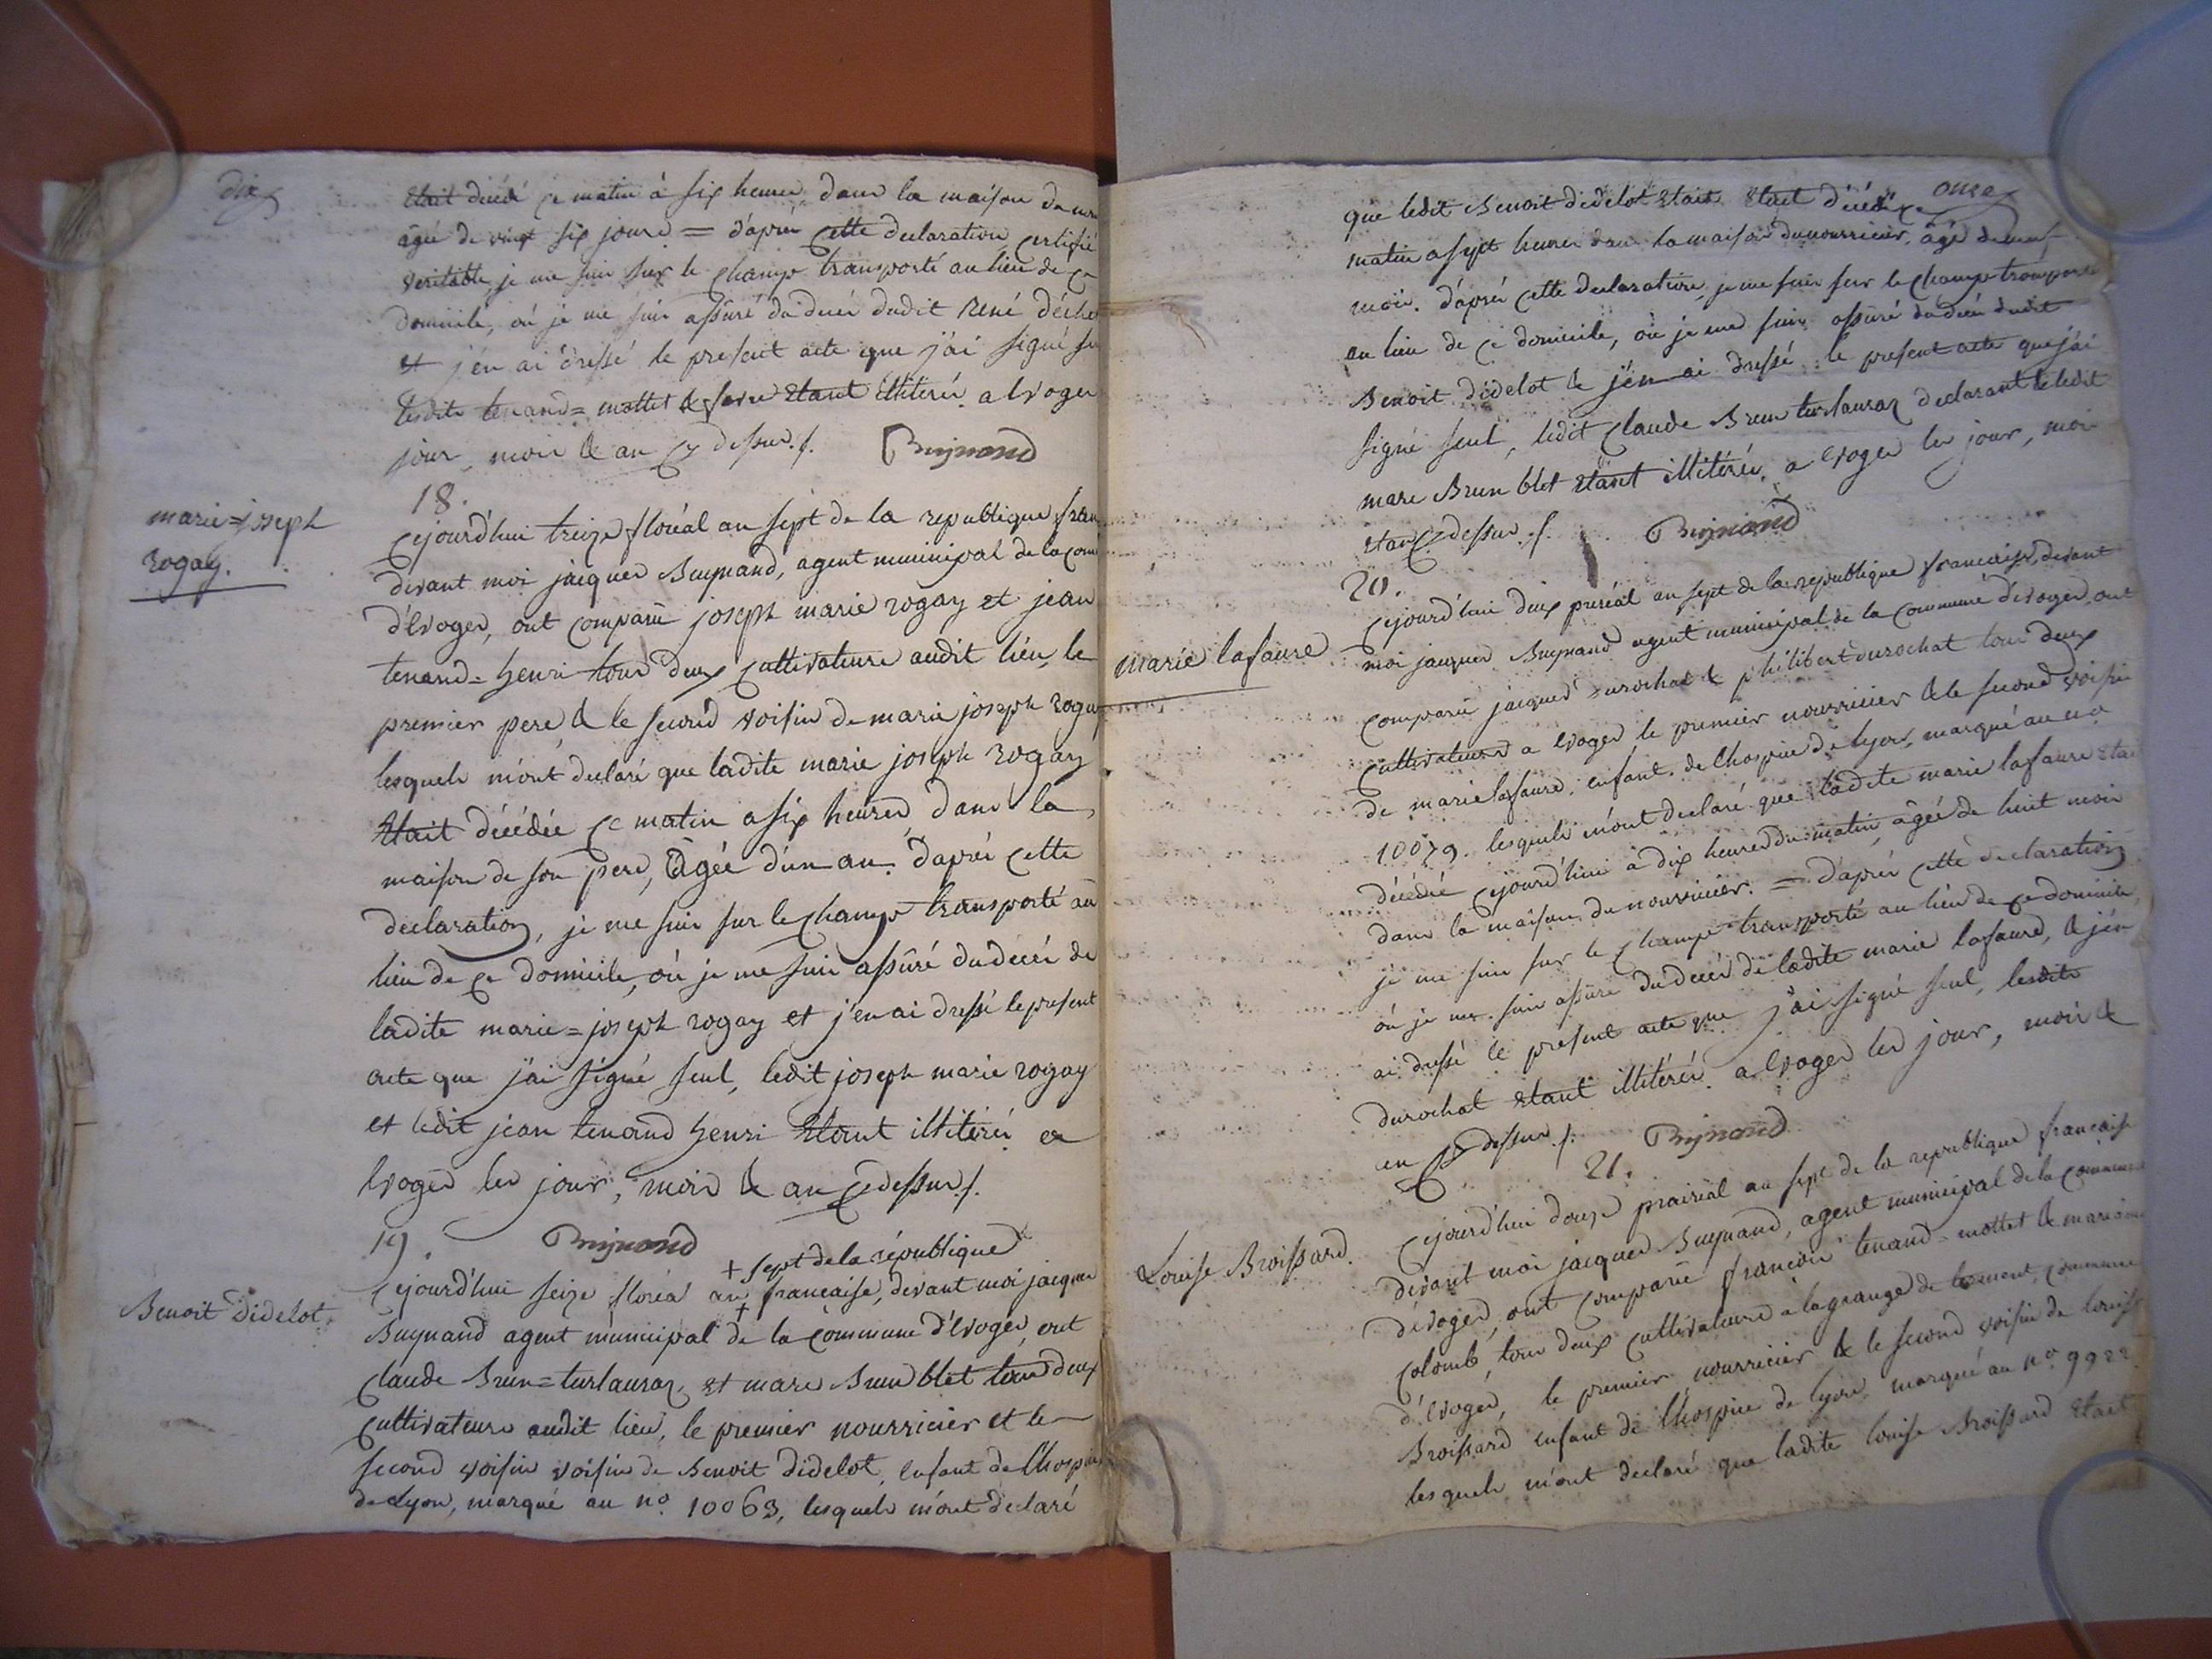 dix
était décédé ce matin à six heures dans la maison
âgée de vingt six jours = d'après cette declaration certifié
veritable, je me suis sur le champs transporté au lieu de ce
domicile, où je me suis assuré du decés dudit René
et j'en ai dressé le present acte que j'ai signé
lesdits tenand = mottet & étant illitérés a Evoges
jour, mois & an cy dessus./. Buynand
18.
marie = joseph
rogay.
Cejourd'hui treize floréal an sept de la republique
devant moi jacques Buynand, agent municipal de la
d'Evoges, ont comparu joseph marie rogay et jean
tenand = henri tous deux cultivateurs audit lieu, le
premier pere & le second voisin de marie joseph rogay
lesquels m'ont declaré que ladite marie joseph rogay
était décédée ce matin a six heures dans la
maison de son pere, âgée d'un an. d'après cette
declaration, je me suis sur le champs transporté au
lieu de ce domicile, où je me suis assuré du decés de
ladite marie = joseph rogay et j'en ai dressé le present
acte que j'ai signé seul, ledit joseph marie rogay
et ledit jean tenand henri étant illitérés a
Evoges les jour, mois & an cy dessus./.
19. Buynand
+ sept de la république
Benoit didelot.
Cejourd'hui seize floréal an + française, devant moi jacques
Buynand agent municipal de la commune d'Evoges, ont
claude Brun = turlauraz, et marc Brun blet tous deux
cultivateurs audit lieu, le premier nourricier et le
second voisin voisin de Benoit didelot, enfant de l'hospice
de Lyon, marqué au n.o 10063, lesquels m'ont declaré
onze
que ledit Benoit didelot était était décédé ce
matin a sept heures dans la maison du nourricier, âgé de neuf
mois. d'après cette declaration, je me suis sur le champs transporté
au lieu de ce domicile, où je me suis assuré du decés dudit
Benoit didelot & j'en ai dressé le present acte que j'ai
signé seul, ledit claude Brun turlauraz declarant & ledit
marc Brun blet étant illitérés, a Evoges les jour, mois
et an cy dessus./. Buynand
20.
marie lafaure
Cejourd'hui deux preréal an sept de la republique francaise, devant
moi jacques Buynand agent municipal de la commune d'Evoges, ont
comparu jacques durochat & philibert durochat tous deux
cultivateurs a Evoges le premier nourricier & le second voisin
de marie lafaure, enfant de l'hospice de lyon, marqué au n.o
10079. lesquels m'ont declaré que ladite marie lafaure
décédée cejourd'hui à dix heures du matin, âgée de huit mois
dans la maison du nourricier. = d'après cette declaration
je me suis sur le champs transporté au lieu de ce domicile,
où je me suis assuré du decés de ladite marie lafaure, & j'en
ai dressé le present acte que j'ai signé seul, lesdits
durochat étant illitérés. a Evoges les jour, mois &
an cy dessus./. Buynand
21.
Louise Broissard.
Cejourd'hui douze prairial an sept de la republique française
devant moi jacques Buynand, agent municipal de la commune
d'Evoges, ont comparu francois tenand = mottet &
colomb, tous deux cultivateurs a la grange de commune
d'Evoges, le premier nourricier & le second voisin de Louise
Broissard enfant de l'hospice de lyon marqué au n.o 9922.
lesquels m'ont declaré que ladite louise Broissard était